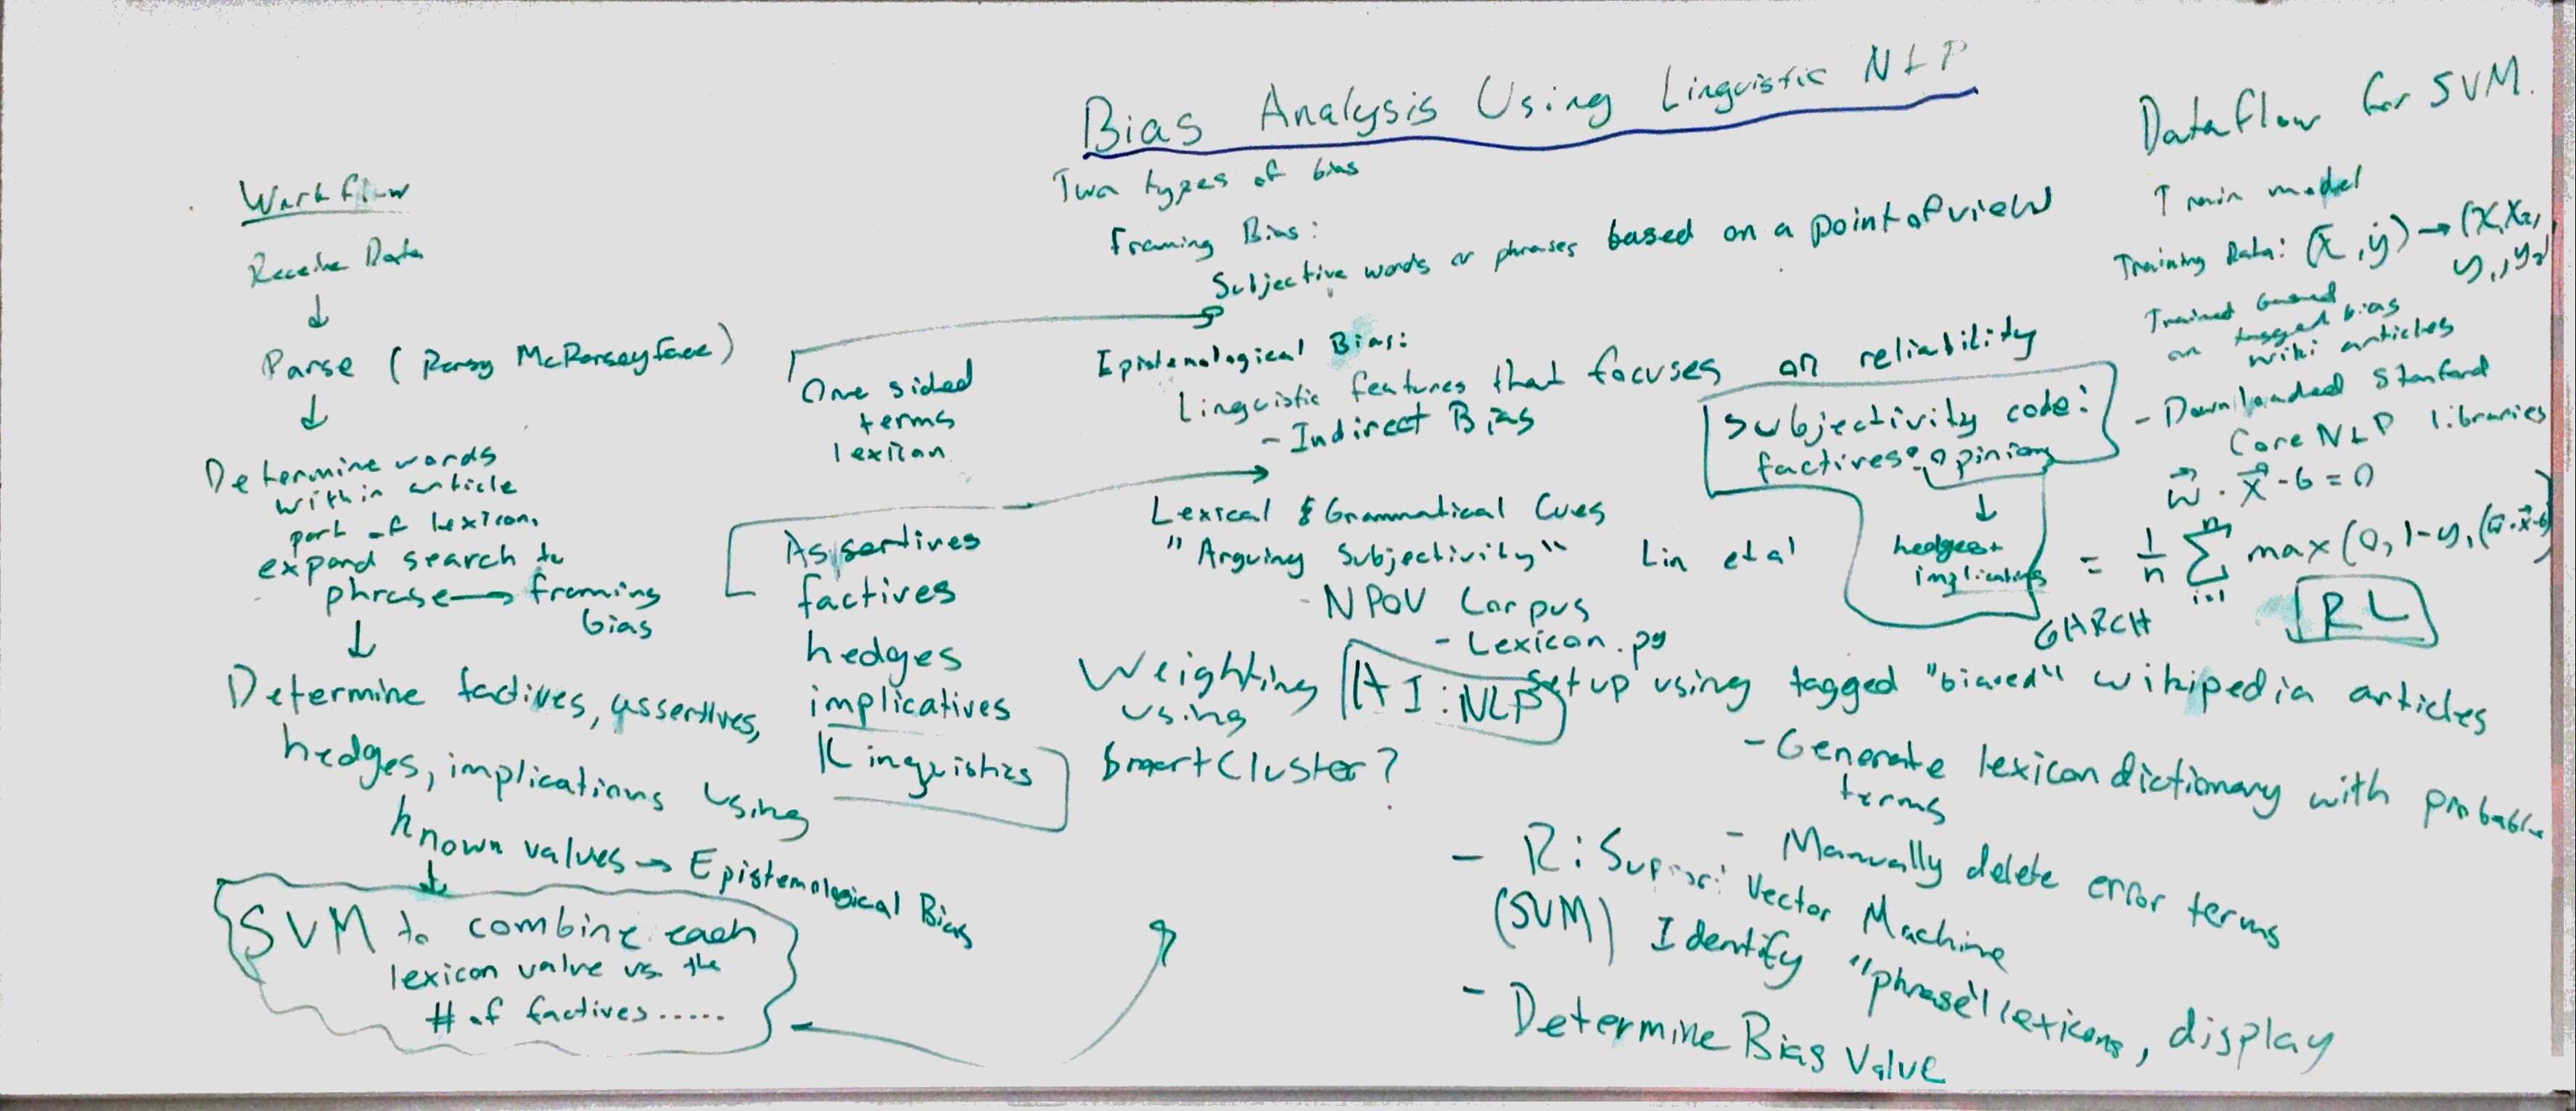 Bias Analysis Using Linguistic NLP
Workflow
Receive Data
↓
Parse (Parsy McParseyface)
↓
Determine words
within article
part of lexicon,
expand search to
phrase → framing
bias
↓
Determine factives, assertives,
hedges, implications using
known values → Epistemological Bias
↓
SVM to combine each
lexicon value vs. the
# of factives.....
One sided
terms
lexicon
Assertives
factives
hedges
implicatives
Linguistics
Two types of bias
Framing Bias:
Subjective words or phrases based on a point of view
Epistemological Bias:
Linguistic features that focuses on reliability
- Indirect Bias
Lexical & Grammatical Cues
"Arguing Subjectivity" Lin et al
- NPOV Corpus
- Lexicon.py
Subjectivity code:
factives: opinions
↓
hedges +
implicatives
Weighting
using
SmartCluster?
AI: NLP Setup using tagged "biased" wikipedia articles
- Generate lexicon dictionary with probable
terms
- Manually delete error terms
- R: Support Vector Machine
(SVM) Identify "phrase" lexicons, display
- Determine Bias Value
Dataflow for SVM.
Train model
Training Data: (x, y) → (x, x2,
y1, y2
Trained
on tagged bias
wiki articles
- Downloaded Stanford
Core NLP libraries
w · x - b = 0
= 1/n Σ i=1 n max(0, 1-y, (w · x - b)
GARCH
RL